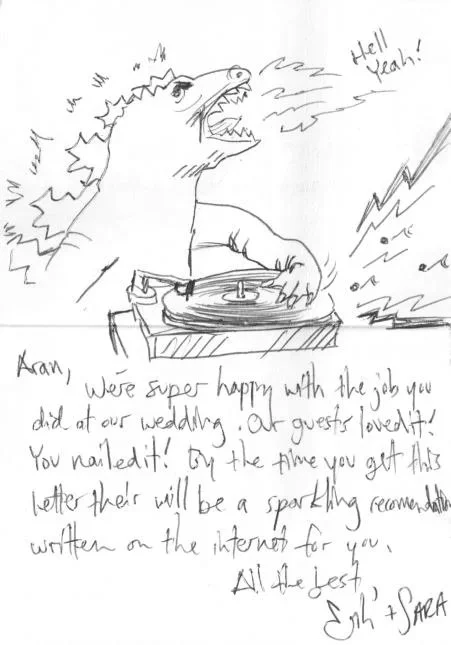 Hell
Yeah!
Aran,
We're super happy with the job you
did at our wedding. Our guests loved it!
You nailed it! By the time you get this
letter their will be a sparkling recomendation
written on the internet for you.
All the best,
+ SARA